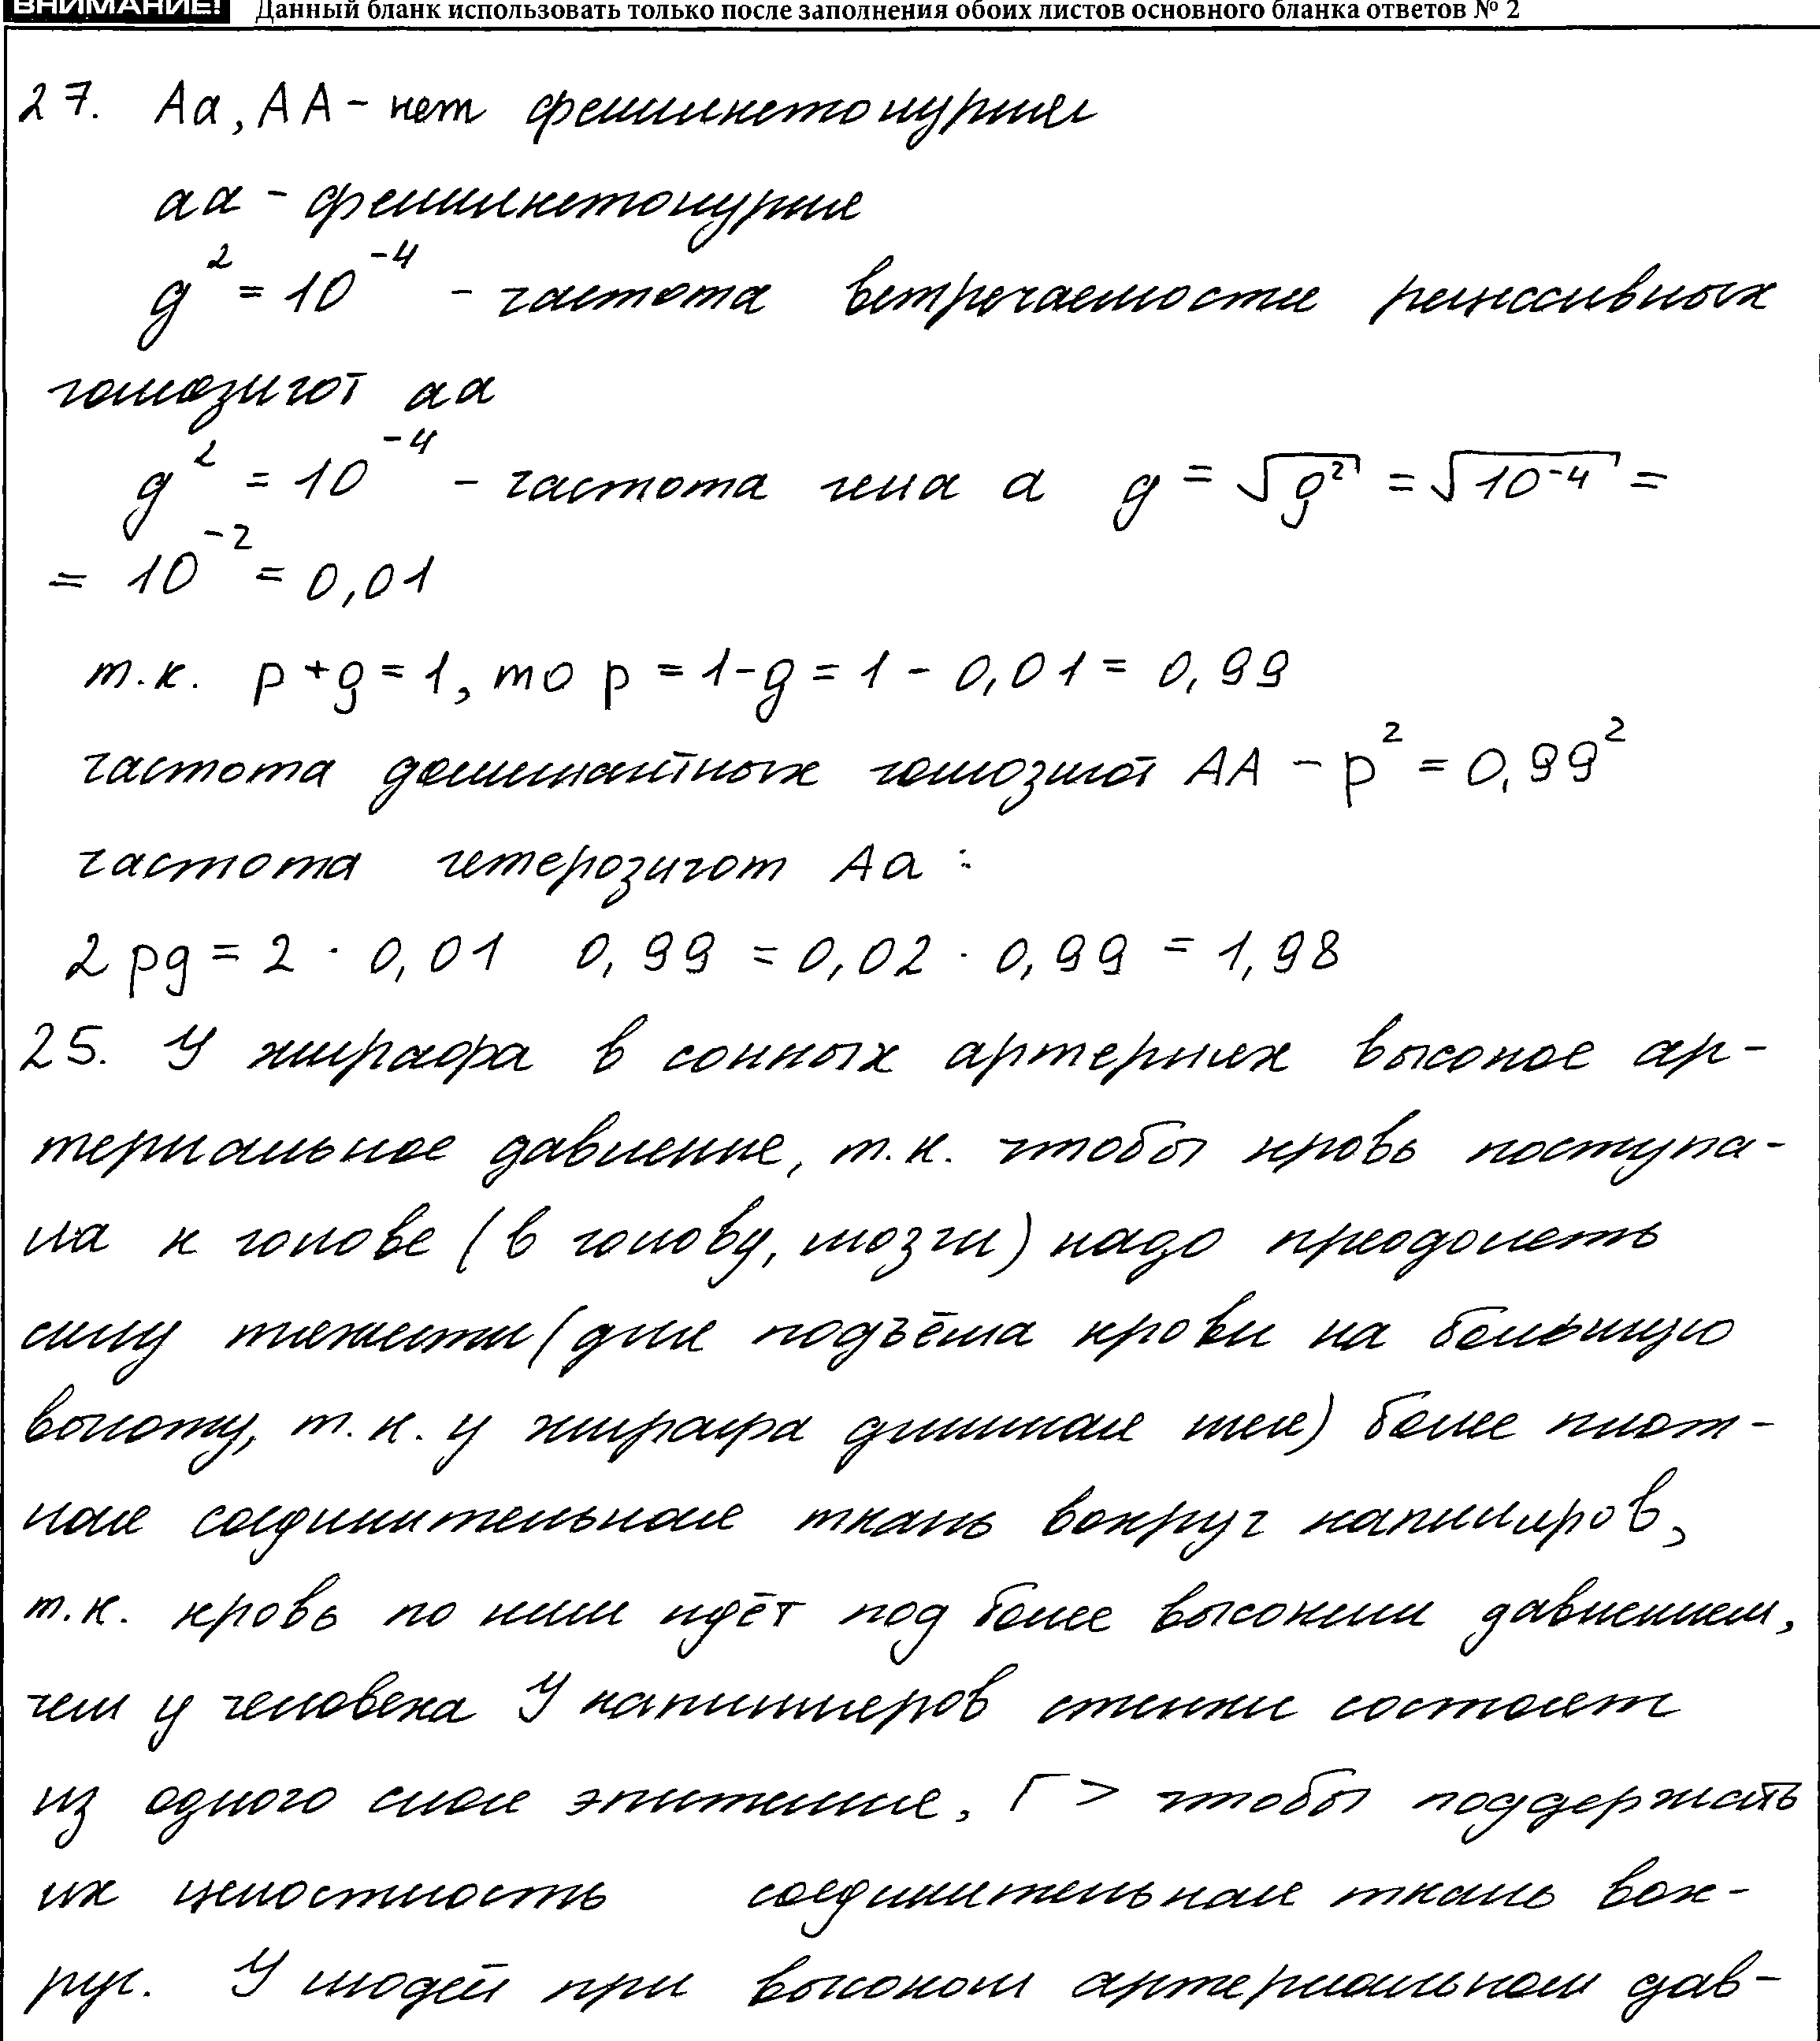 ВНИМАНИЕ! Данный бланк использовать только после заполнения обоих листов основного бланка ответов № 2
27. Аа, АА - нет фенилкетонурии
аа - фенилкетонурия
g² = 10⁻⁴ - частота встречаемости рецессивных
гомозигот аа
g² = 10⁻⁴ - частота гена а g = √g² = √10⁻⁴ =
= 10⁻² = 0,01
т.к. p + g = 1, то p = 1 - g = 1 - 0,01 = 0,99
частота доминантных гомозигот АА - p² = 0,99²
частота гетерозигот Аа :
2 pg = 2 · 0,01 0,99 = 0,02 · 0,99 = 1,98
25. У жирафа в сонных артериях высокое ар-
териальное давление, т.к. чтобы кровь поступа-
ла к голове (в голову, мозги) надо преодолеть
силу тяжести (для подъёма крови на большую
высоту, т.к. у жирафа длинная шея) более плот-
ная соединительная ткань вокруг капиляров,
т.к. кровь по ним идёт под более высоким давлением,
чем у человека У капилляров стенки состоят
из одного слоя эпителия, Г > чтобы поддержать
их целостность соединительная ткань вок-
руг. У людей при высоком артериальном дав-